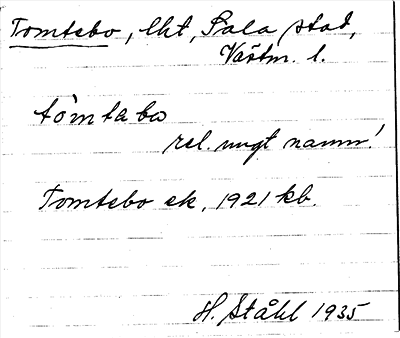 Tomtebo, lht, Sala stad,
Västm. l.
tòmtabo
rel. ungt namn!
Tomtebo ek. 1921 kb.
H. Ståhl 1935